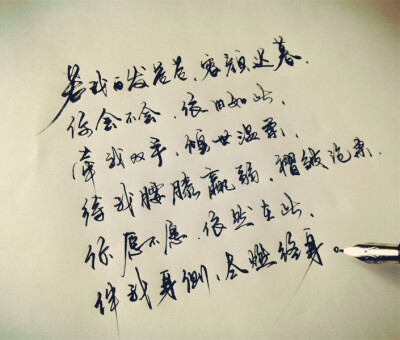 若我白发苍苍,容颜迟暮.
你会不会,依旧如此,
牵我双手,倾世温柔,
待我腰膝羸弱,褶皱沧桑,
你愿不愿,依然在此,
伴我身侧,燃终身